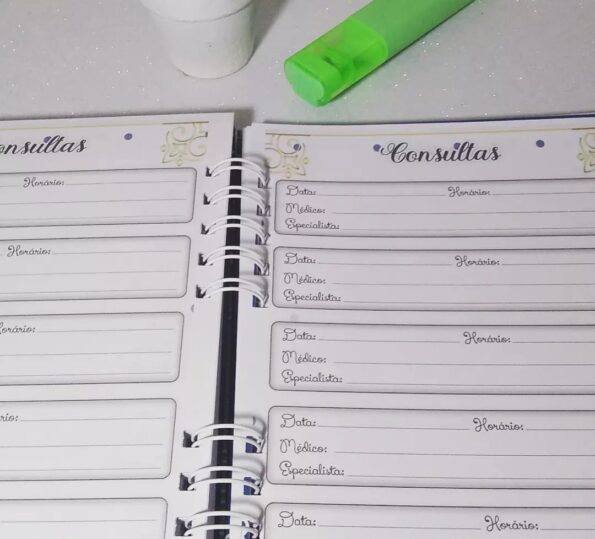 onsultas
Horário:
Horário:
Horário:
rio:
Consultas
Data: Horário:
Médico:
Especialista:
Data: Horário:
Médico:
Especialista:
Data: Horário:
Médico:
Especialista:
Data: Horário:
Médico:
Especialista:
Data: Horário: